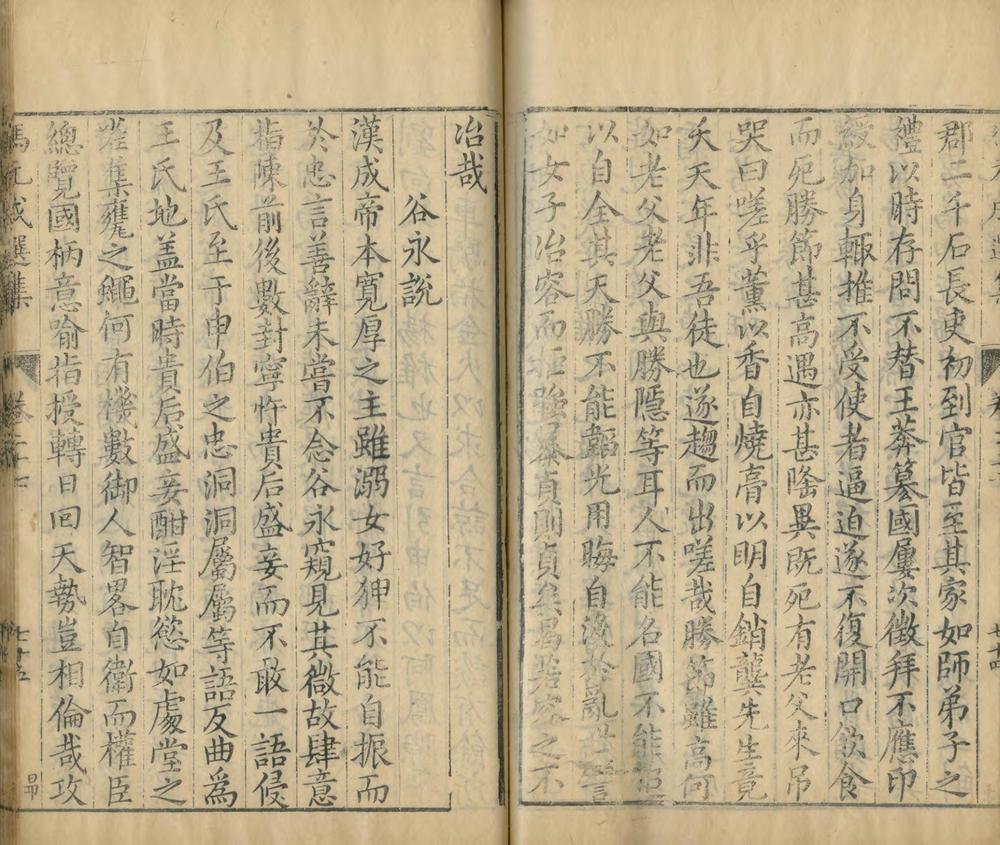 郡二千石長吏初到官皆至其家如師弟子之
禮以時存問不替王莽篡國屢次徵拜不應印
綬加身輙推不受使者逼迫遂不復開口飲食
而死勝節甚高遇亦甚隆異既死有老父來吊
哭曰嗟乎薰以香自燒膏以明自銷龔先生竟
夭天年非吾徒也遂趨而出嗟哉勝節雖高何
如老父老父與勝隱等耳人不能名國不能
以自全其天勝不能韜光用晦自汲於亂世
如女子冶容而強暴貞則貞矣曷若之不
冶哉
谷永說
漢成帝本寬厚之主雖溺女好狎不能自振而
於忠言善辭未嘗不念谷永窺見其微故肆意
指陳前後數封寧忤貴后盛妾而不敢一語侵
及王氏至于申伯之忠洞洞屬屬等語反曲為
王氏地盖當時貴后盛妾酣淫耽慾如處堂之
雀集甕之蠅何有機數御人智畧自衛而權臣
總覽國柄意喻指授轉日回天勢豈相倫哉攻
馮元成選集
卷二十七
七十五